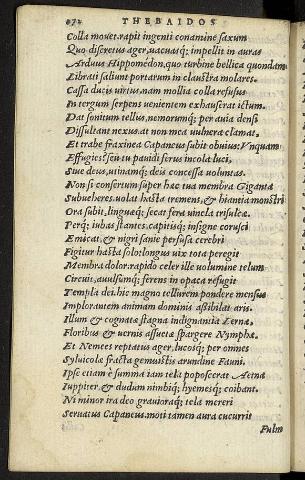 THEBAIDOS
Colla mouet. rapit ingenti conamine saxum
Quo discretus ager, uacuasq; impellit in auras
Arduus Hippomedon, quo turbine bellica quondam
Librati saliunt portarum in claustra molares.
Cassa ducis uirtus, nam mollia colla refusus
In tergum serpens uenientem exhauserat ictum.
Dat sonitum tellus, nemorumq; per auia densi
Dissultant nexus. at non mea uulnera clamat,
Et trabe fraxinea Capaneus subit obuius: Vnquam
Effugies? seu tu pauidi ferus incola luci,
Siue deus, utinamq; deis concessa uoluntas.
Non si consertum super hac tua membra Giganta
Subueheres. uolat hasta tremens, & hiantia monstri
Ora subit, linguaeq; secat fera uincla trisulcæ.
Perq; iubas stantes, capitisq; insigne corusci
Emicat, & nigri sanie perfusa cerebri
Figitur hasta solo. longus uix tota peregit
Membra dolor. rapido celer ille uolumine telum
Circuit, auulsumq; ferens in opaca refugit
Templa dei. hic magno tellurem pondere mensus
Implorantem animam dominis assibilat aris.
Illum & cognatæ stagna indignantia Lernæ,
Floribus & uernis assuetæ spargere Nymphæ.
Et Nemees reptatus ager, lucosq; per omnes
Syluicolæ fracta gemuistis arundine Fauni.
Ipse etiam è summa iam tela poposcerat Aetna
Iuppiter, & dudum nimbiq; hyemesq; coibant.
Ni minor ira deo grauioraq; tela mereri
Seruatus Capaneus. moti tamen aura cucurrit
Fulm